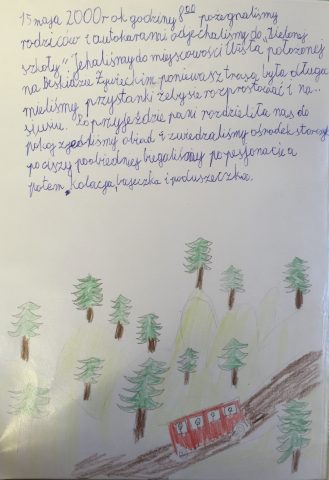 15 maja 2000 rok godziny 8⁵⁰ pożegnaliśmy
rodziców i autokarami odjechaliśmy do „Zielonej
szkoły”. Jehaliśmy do miejscowości Usta położonej
na Beskidzie Żywieckim, ponieważ trasa była długa
mieliśmy przystanki żeby się rozprostować i na..
siusie. Po przyjeździe pani rozdzieliła nas do
pokoj zjedliśmy obiad i zwiedzaliśmy ośrodek
po ciszy poobiedniej biegaliśmy po pesjonacie a
potem kolacja, bajeczka i poduszeczka.